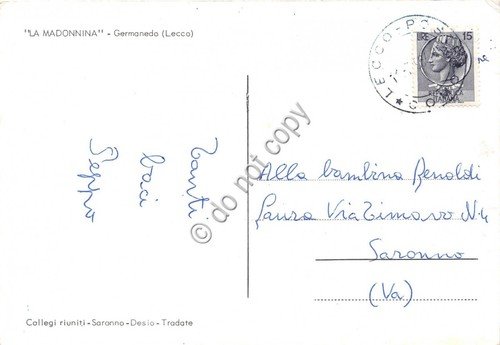 "LA MADONNINA" - Germanedo (Lecco)
LECCO-
15
Tanti
baci
Peppo
Alla bambina Renoldi
Laura Via Timavo N. 4
Saronno
(Va)
do not copy
Collegi riuniti - Saronno - Desio - Tradate